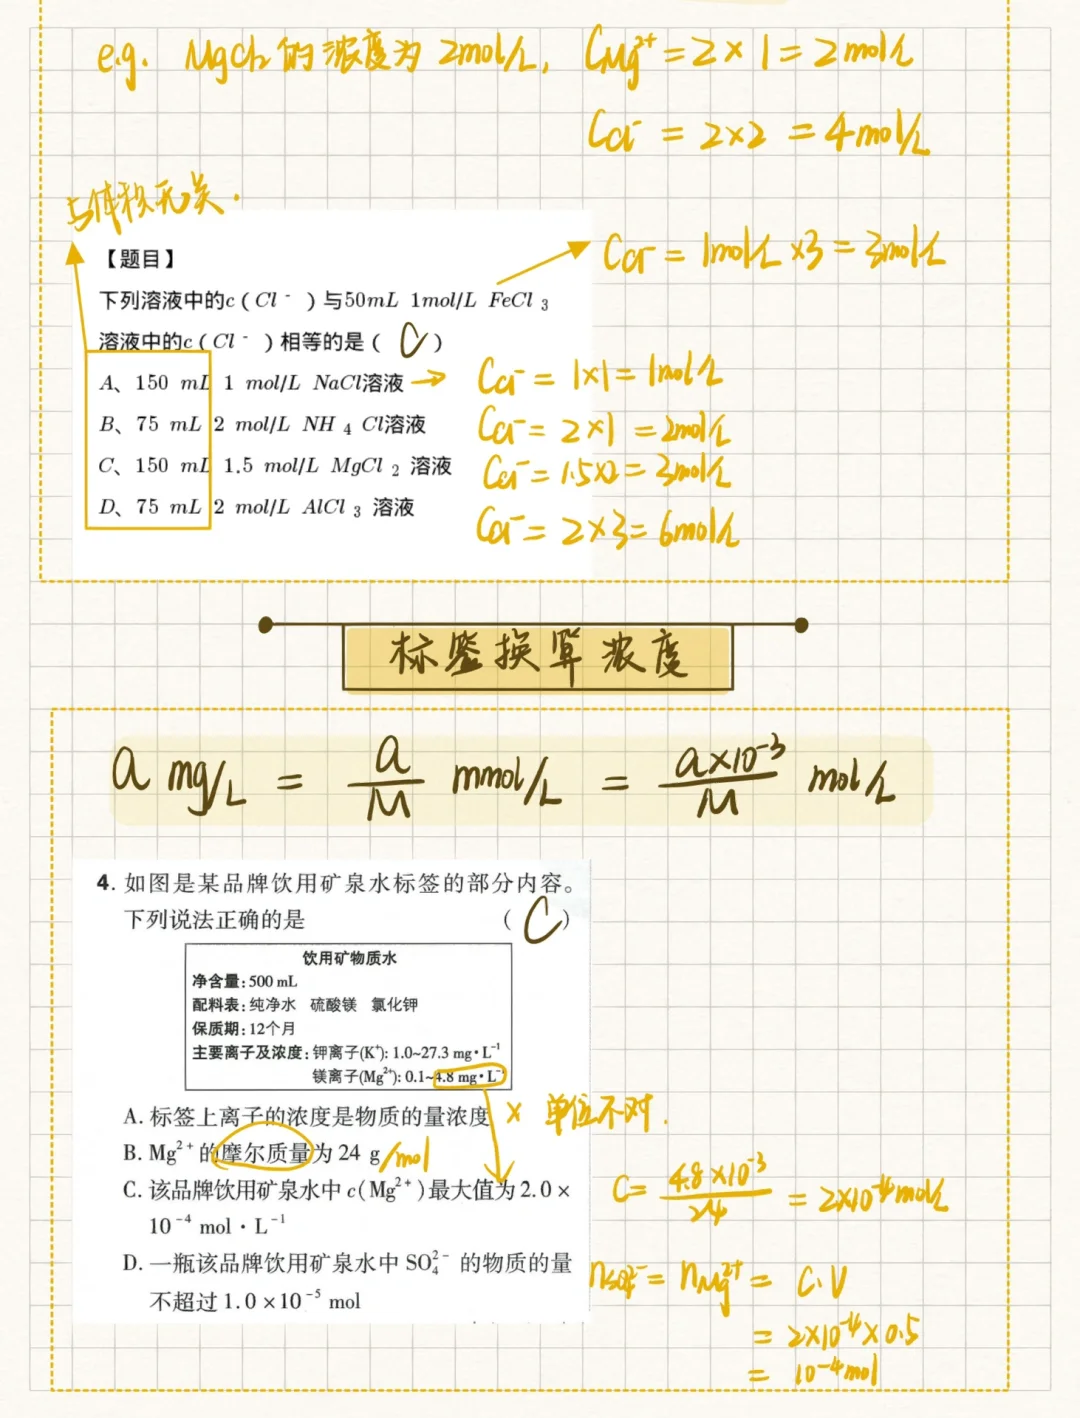 e.g. MgCl₂的浓度为2mol/L, C Mg²⁺=2×1=2mol/L
C Cl⁻=2×2=4mol/L
与体积无关.
【题目】
C Cl⁻=1mol/L×3=3mol/L
下列溶液中的c(Cl⁻)与50mL 1mol/L FeCl₃
溶液中的c(Cl⁻)相等的是(C)
A、150 mL 1 mol/L NaCl溶液→C Cl⁻=1×1=1mol/L
B、75 mL 2 mol/L NH₄Cl溶液 C Cl⁻=2×1=2mol/L
C、150 mL 1.5 mol/L MgCl₂溶液 C Cl⁻=1.5×2=3mol/L
D、75 mL 2 mol/L AlCl₃溶液 C Cl⁻=2×3=6mol/L
标签换算浓度
a mg/L = a/M mmol/L = a×10⁻³/M mol/L
4. 如图是某品牌饮用矿泉水标签的部分内容。
下列说法正确的是 (C)
饮用矿物质水
净含量:500 mL
配料表:纯净水 硫酸镁 氯化钾
保质期:12个月
主要离子及浓度:钾离子(K⁺): 1.0~27.3 mg·L⁻¹
镁离子(Mg²⁺): 0.1~4.8 mg·L⁻¹
A. 标签上离子的浓度是物质的量浓度 × 单位不对.
B. Mg²⁺的摩尔质量为24 g/mol
C. 该品牌饮用矿泉水中c(Mg²⁺)最大值为2.0×
10⁻⁴ mol·L⁻¹
C=4.8×10⁻³/24=2×10⁻⁴mol/L
D. 一瓶该品牌饮用矿泉水中SO₄²⁻的物质的量
不超过1.0×10⁻⁵ mol
nSO₄²⁻=nMg²⁺=C.V
=2×10⁻⁴×0.5
=10⁻⁴mol